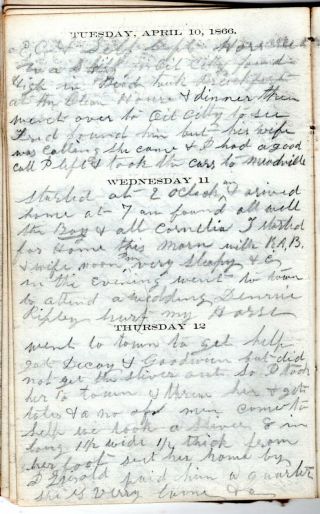 TUESDAY, APRIL 10, 1866.
in a Oil City found
High in took Breakfast
at House & dinner then
went over to Oil City to see
Fred found him but her wife
was calling she came & I had a good
call I left & took the cars to Meadville
WEDNESDAY 11
started at 2 Oclock am arived
home at 7 am found all well
the Boy & all Cornelia I started
for Home this morn with R.A.B.
& wife noon very sleepy & C
in the Evening went to town
to attend a wedding Dennis
Ripley hurt my Horse
THURSDAY 12
went to town to get help
got Decoy & Goodwin but did
not get the sliver out So I took
her to town & threw her & got
& a no of men come to
help we took a sliver 8 in
long 1½ wide ½ thick from
her foot sent her home by
D paid him a quarter
she is very lame &